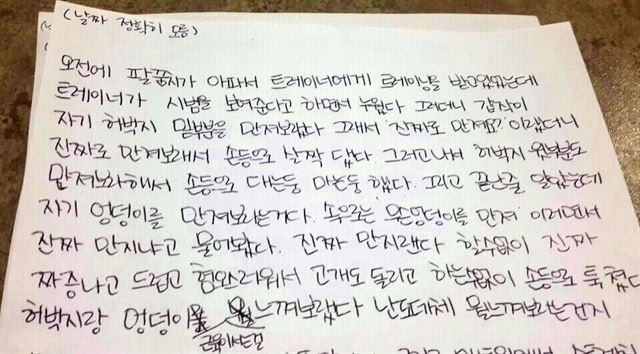 (날짜 정확히 모름)
오전에 팔꿈치가 아파서 트레이너에게 트레이닝을 받고있었는데
트레이너가 시범을 보여준다고 하면서 누웠다 그러더니 갑자기
자기 허벅지 밑부분을 만져보랬다 그래서 '진짜로 만져요?' 이랬더니
진짜로 만져보래서 손등으로 살짝 댔다. 그러고나서 허벅지 윗부분도
만져보라해서 손등으로 대는둥 마는둥 했다. 그리고 끝난줄 알았는데
자기 엉덩이를 만져보라는거다. 손우로는 왼엉덩이를 만져' 이러면서
진짜 만지냐고 물어봤다. 진짜 만지랜다 할수없이 진짜
짜증나고 드럽고 혐오러워서 고개도 돌리고 하는수없이 손등으로 툭 쳤다
허벅지랑 엉덩이를 느껴보랬다 난도대체 뭘느껴보라는건지